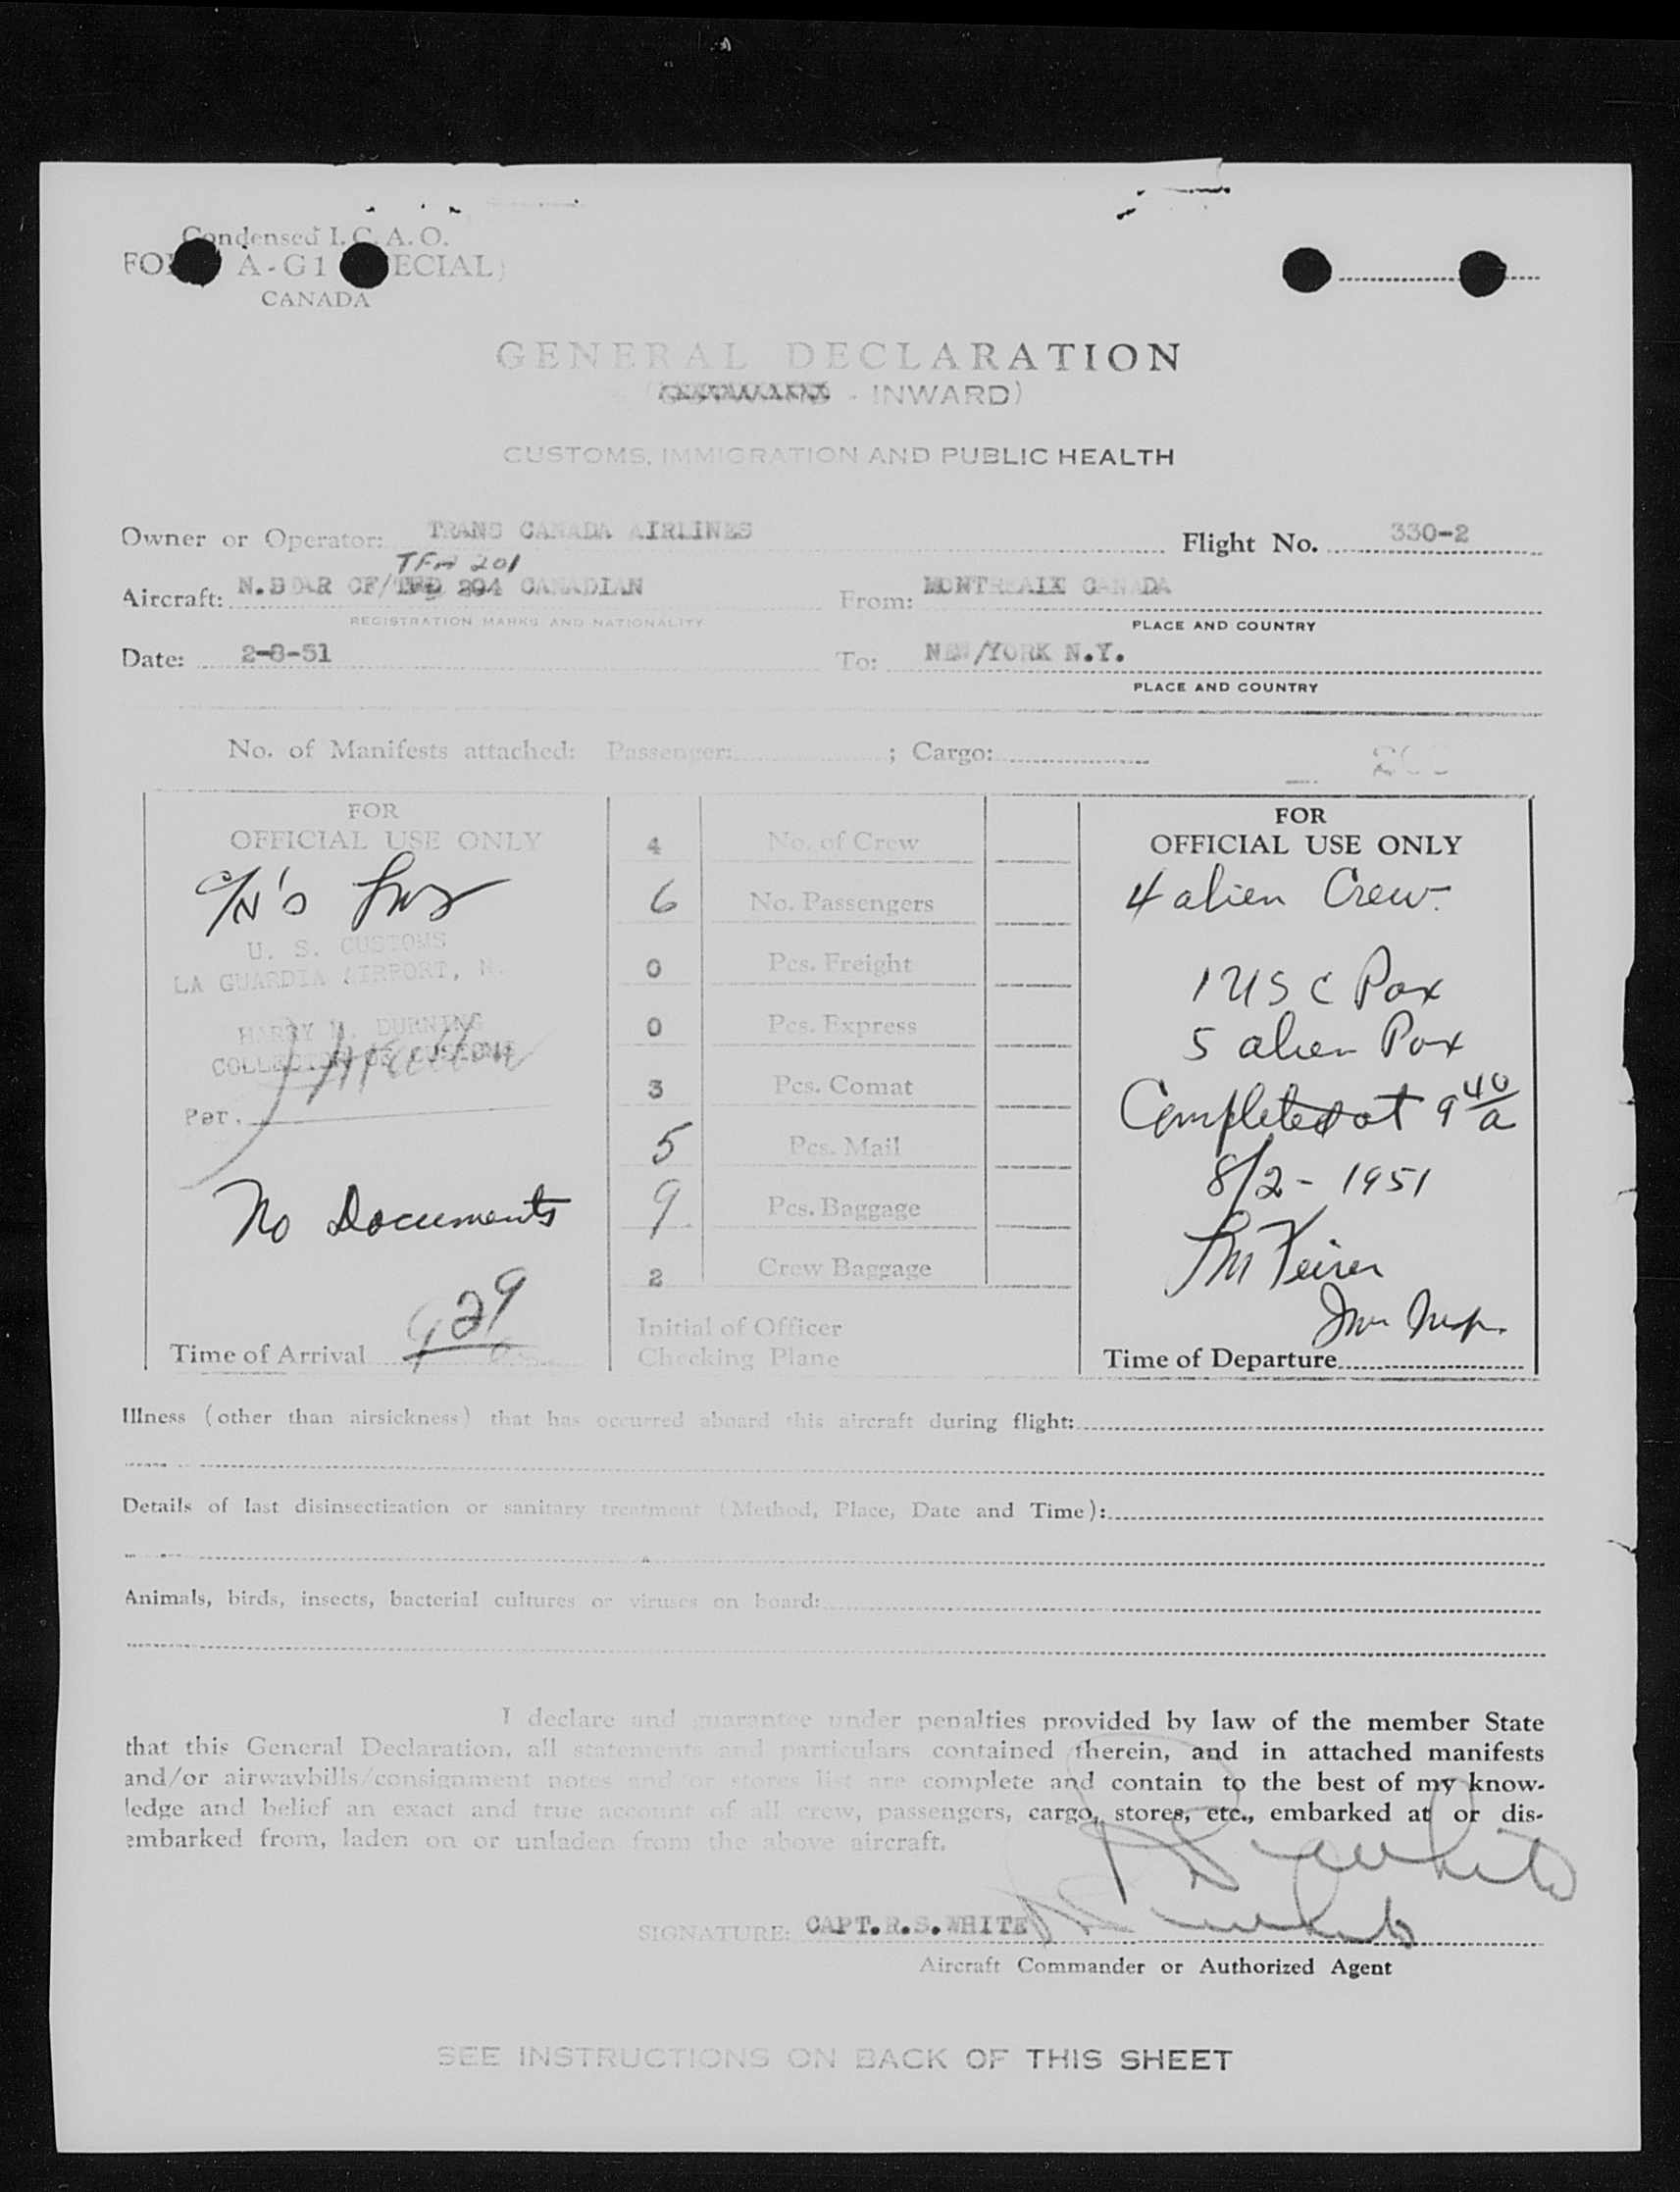 Condensed I. C. A. O.
A-G1 ECIAL)
CANADA
GENERAL DECLARATION
- INWARD)
CUSTOMS, IMMIGRATION AND PUBLIC HEALTH
Owner or Operator: TRANS CANADA AIRLINES Flight No. 330-2
201
Aircraft: CF/ 204 CANADIAN From: CANADA
REGISTRATION MARKS AND NATIONALITY PLACE AND COUNTRY
Date: 2-8-51 To: NEW/YORK N.Y.
PLACE AND COUNTRY
No. of Manifests attached: Passenger: ; Cargo:
FOR
OFFICIAL USE ONLY
U. S. CUSTOMS
LA GUARDIA AIRPORT, N.
HARRY M. DURNING
COLLECTOR OF CUSTOMS
Per.
No Documents
Time of Arrival 9 29
4 No. of Crew
6 No. Passengers
0 Pcs. Freight
0 Pcs. Express
3 Pcs. Comat
5 Pcs. Mail
9 Pcs. Baggage
2 Crew Baggage
Initial of Officer
Checking Plane
FOR
OFFICIAL USE ONLY
4 alien Crew.
1 USC Pax
5 alien Pax
Completed at 9 40 a
8/2 - 1951
Time of Departure
Illness (other than airsickness) that has occurred aboard this aircraft during flight:
Details of last disinsectization or sanitary treatment (Method, Place, Date and Time):
Animals, birds, insects, bacterial cultures or viruses on board:
I declare and guarantee under penalties provided by law of the member State
that this General Declaration, all statements and particulars contained therein, and in attached manifests
and/or airwaybills/consignment notes and/or stores list are complete and contain to the best of my know-
ledge and belief an exact and true account of all crew, passengers, cargo, stores, etc., embarked at or dis-
embarked from, laden on or unladen from the above aircraft.
SIGNATURE: CAPT.R.S.WHITE
Aircraft Commander or Authorized Agent
SEE INSTRUCTIONS ON BACK OF THIS SHEET